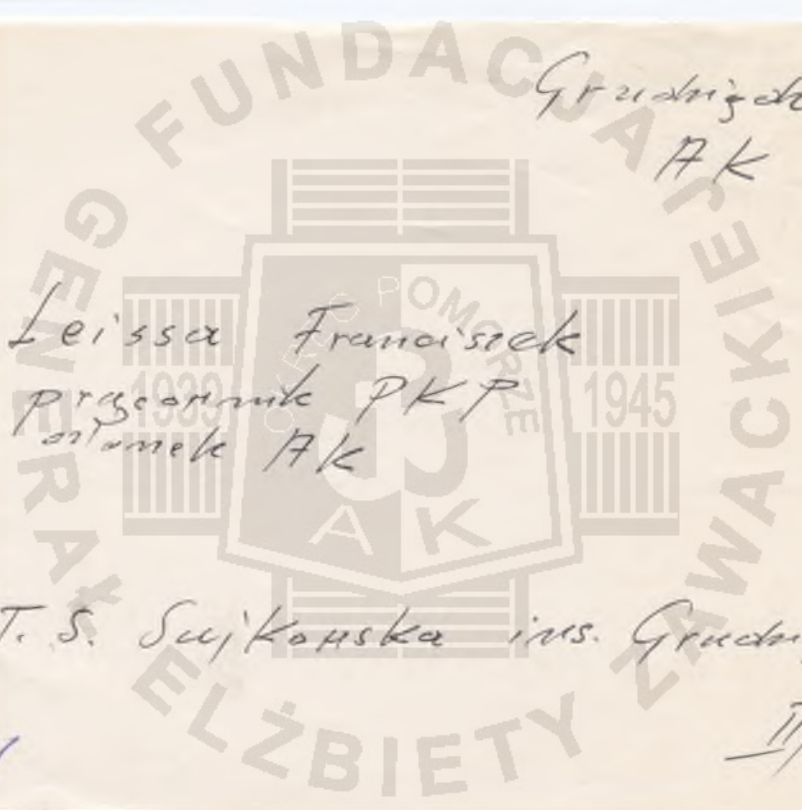 Grudziądz
AK
Leissa Franciszek
pracownik PKP
członek AK
T. S. Sujkowska ins. Grudzi
II/
FUNDACJA GENERAŁ ELŻBIETY ZAWACKIEJ
OKRĘG POMORZE
1939 1945
AK